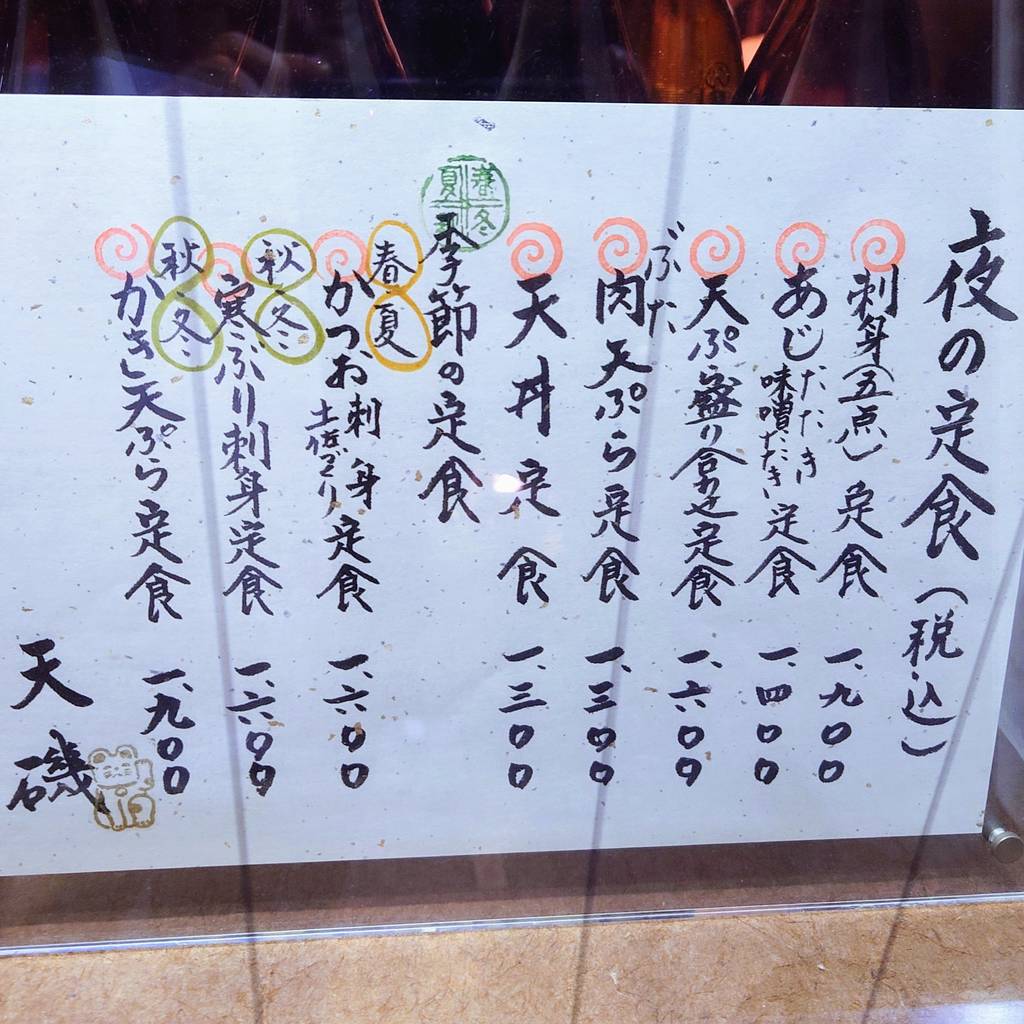 夜の定食（税込）
刺身（五点）定食 一、九〇〇
あじたたき 味噌たたき 定食 一、四〇〇
天ぷら盛り合わせ定食 一、六〇〇
ぶた
肉天ぷら定食 一、三〇〇
天丼定食 一、三〇〇
春夏冬
季節の定食
春夏
かつお刺身 土佐づくり 定食 一、六〇〇
秋冬
寒ぶり刺身定食 一、六〇〇
秋冬
かき天ぷら定食 一、九〇〇
天磯